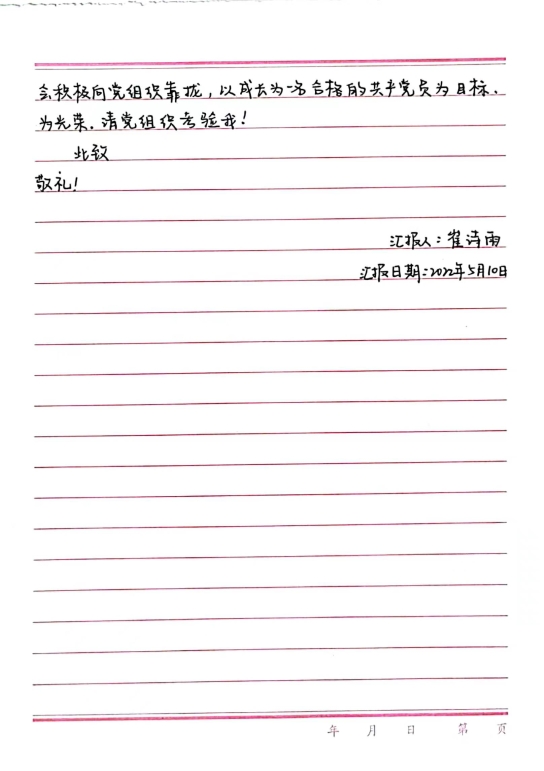 会积极向党组织靠拢，以成长为一名合格的共产党员为目标、
为光荣。请党组织考验我！
此致
敬礼！
汇报人：崔诗雨
汇报日期：2022年5月10日
年 月 日 第 页